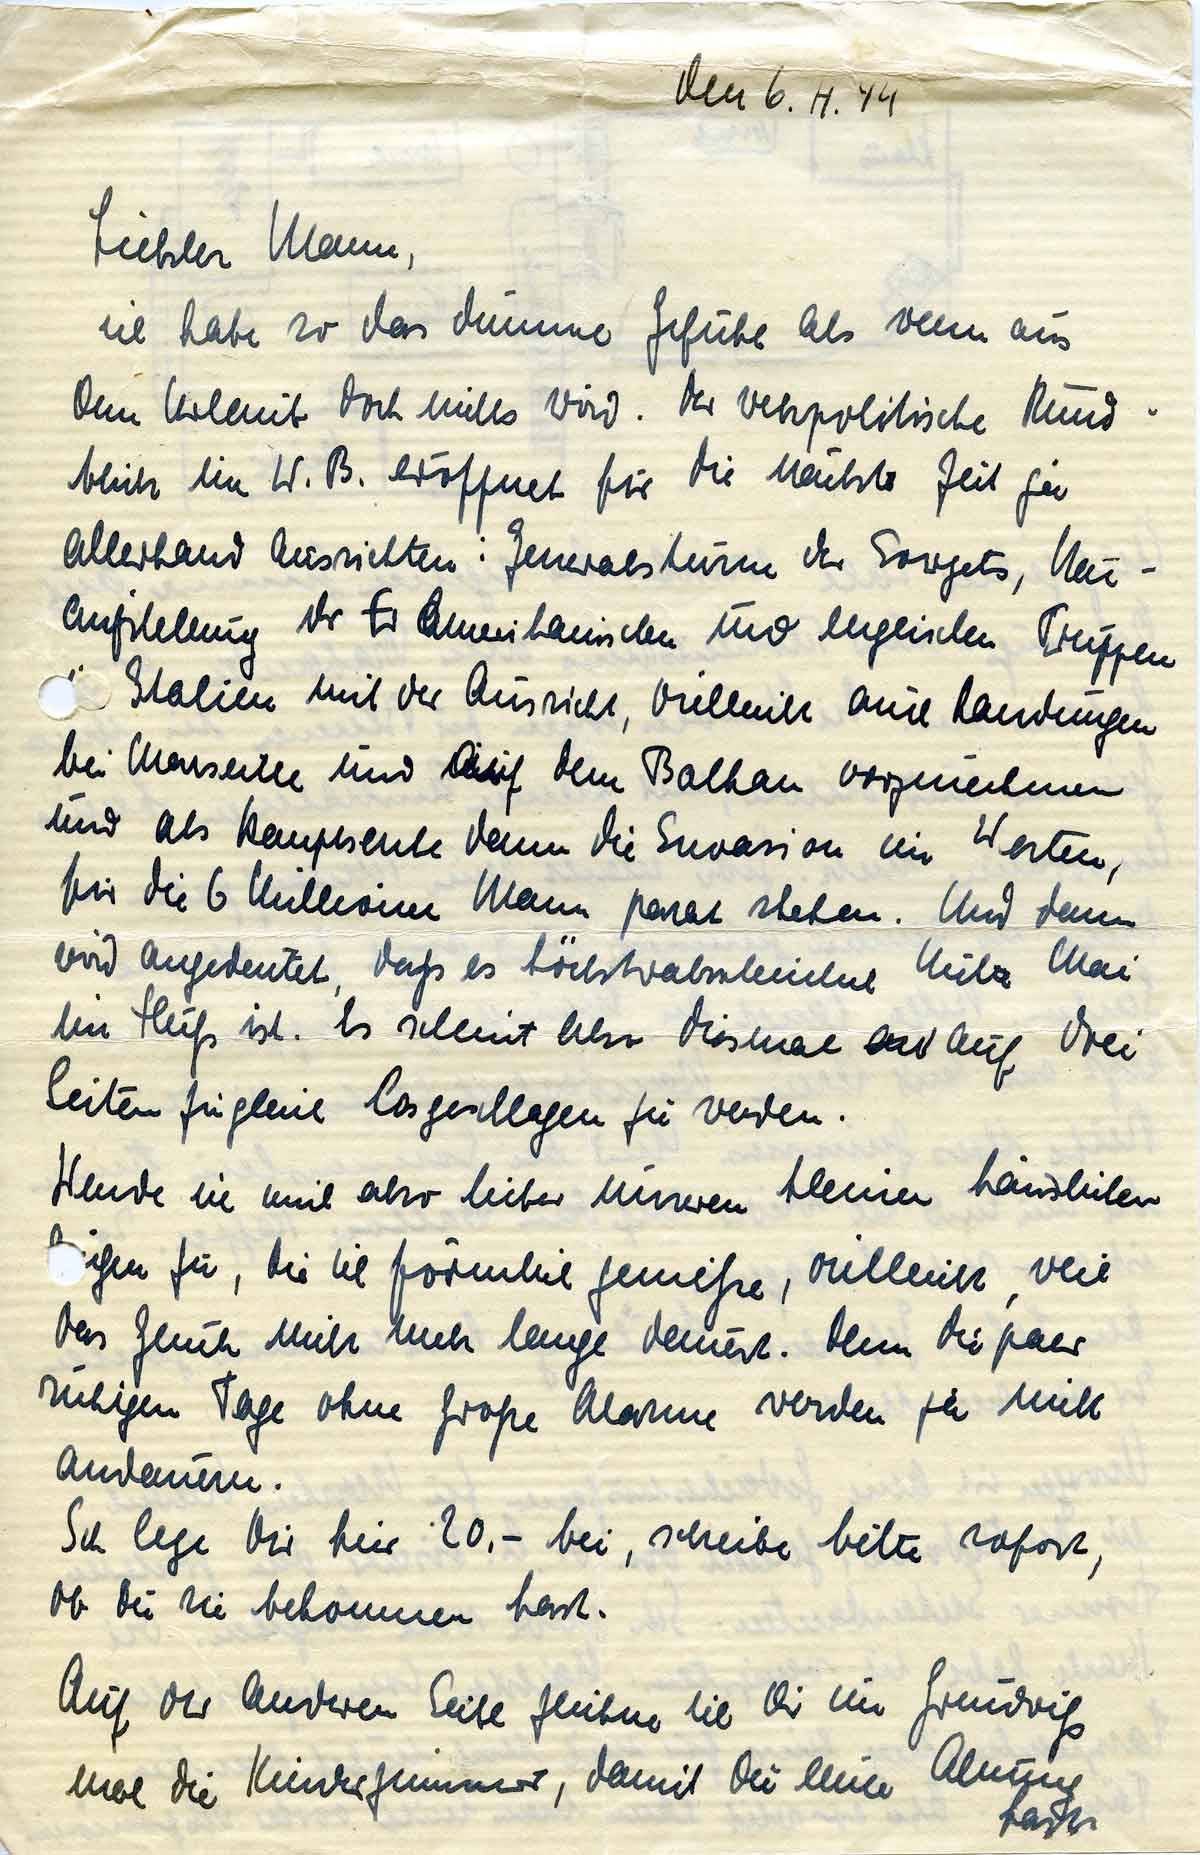 den 6. 4. 44
Liebster Mann,
ich habe so das dumme Gefühl als wenn aus
dem Urlaub doch nichts wird. Der wehrpolitische Rund-
blick im W. B. eröffnet für die nächste Zeit ja
allerhand Aussichten: Generalsturm der Sowjets, Neu-
aufstellung der amerikanischen und englischen Truppen
Italien mit der Aussicht, vielleicht auch Landungen
bei Marseille und auf dem Balkan vorzunehmen
und als Hauptsache dann die Invasion im Westen,
für die 6 Millionen Mann parat stehen. Und dann
wird angedeutet, daß es höchstwahrscheinlich Mitte Mai
im Fluß ist. Es scheint also diesmal auf drei
Seiten zugleich losgeschlagen zu werden.
Wende ich mich also lieber unseren kleinen häuslichen
zu, die ich förmlich genieße, vielleicht, weil
das Glück nicht mehr lange dauert. Denn die paar
ruhigen Tage ohne große Alarme werden ja nicht
andauern.
Ich lege Dir hier 20,- bei, schreibe bitte sofort,
ob du sie bekommen hast.
Auf der anderen Seite zeichne ich Dir im Grundriß
mal die Kinderzimmer, damit du eine Ahnung
hast.